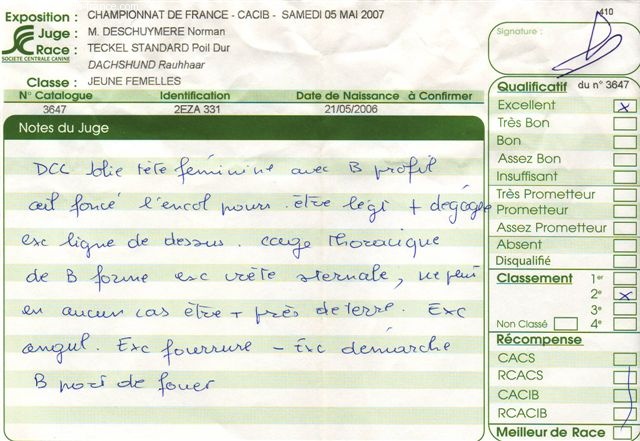 Exposition : CHAMPIONNAT DE FRANCE - CACIB - SAMEDI 05 MAI 2007
Juge : M. DESCHUYMERE Norman
Race : TECKEL STANDARD Poil Dur
SOCIETE CENTRALE CANINE
DACHSHUND Rauhhaar
Classe : JEUNE FEMELLES
N° Catalogue Identification Date de Naissance à Confirmer
3647 2EZA 331 21/05/2006
Notes du Juge
DCC Jolie tête féminine avec B profil
œil foncé l'encol pours. être légt + dégagée
exc ligne de dessus. cage thoracique
de B forme exc crête sternale, ne peut
en aucun cas être + près de terre. Exc
angul. Exc fourrure - Exc démarche
B port de fouet
410
Signature :
Qualificatif du n° 3647
Excellent x
Très Bon
Bon
Assez Bon
Insuffisant
Très Prometteur
Prometteur
Assez Prometteur
Absent
Disqualifié
Classement 1er
2e x
3e
Non Classé 4e
Récompense
CACS
RCACS
CACIB
RCACIB
Meilleur de Race